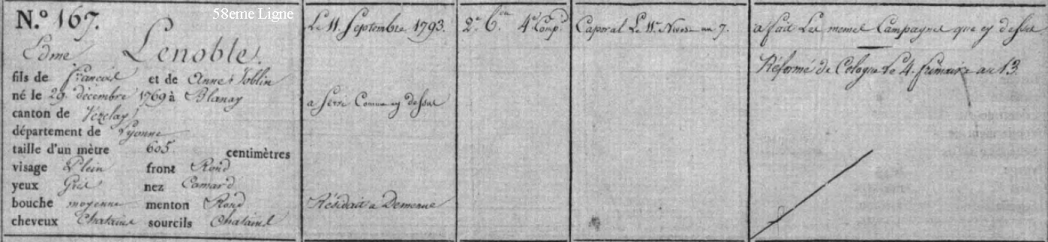 58eme Ligne
N.º 167.
Edme Lenoble.
fils de Francois et de Anne Joblin
né le 29 décembre 1769 à Blanay
canton de Vezelay
département de Lyonne
taille d'un mètre 605 centimètres
visage Plein front Rond
yeux Gris nez Camard
bouche moyenne menton Rond
cheveux Chatains sourcils Chatains
Le 11 Septembre 1793.
a Servi Comme cy dessus
Résidait a
2.e 6.in 4.e Comp.
Caporal Le 11 Nivose an 7.
a fait Les memes Campagnes que cy dessus
Réformé de Cologne le 4. frimaire an 13.